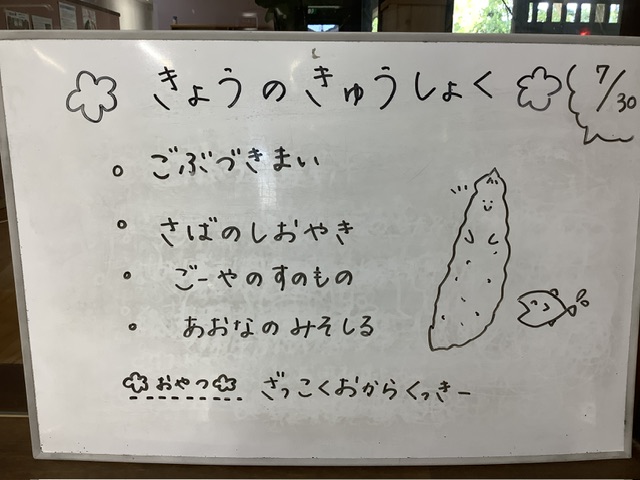 きょうのきゅうしょく
7/30
ごぶづきまい
さばのしおやき
ごーやのすのもの
あおなのみそしる
おやつ ざっこくおからくっきー